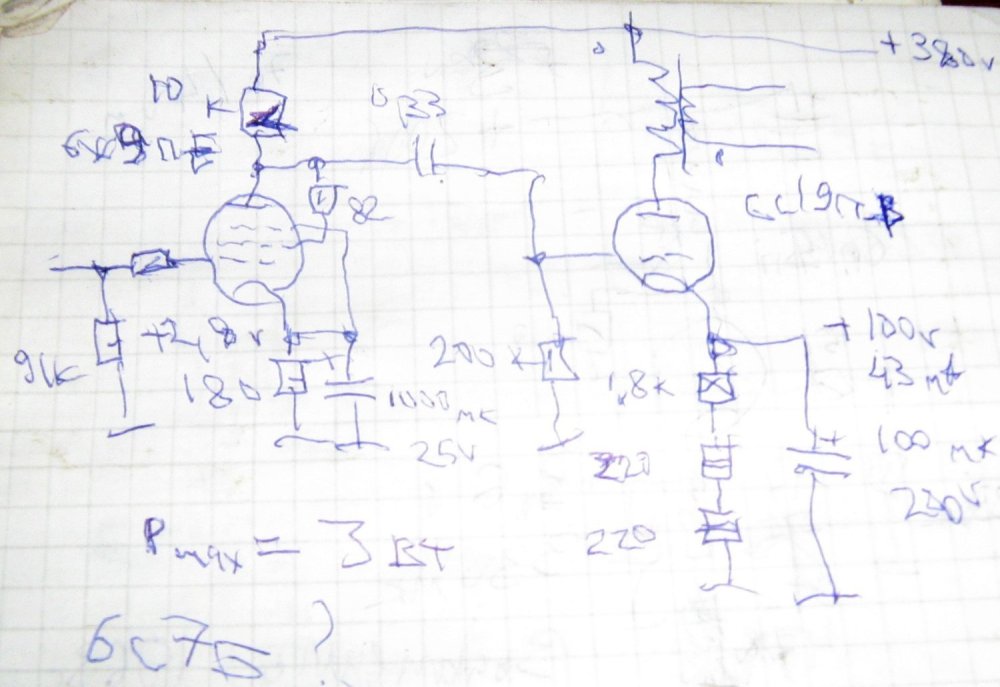 +380v
10
K
0,33
6ж9П-Е
82
6с19П-В
+2,8v
91K
180
1000 мк
25v
200 K
1,8к
220
220
+100v
43 mA
100 мк
250v
Pmax = 3 Вт
6с7Б ?